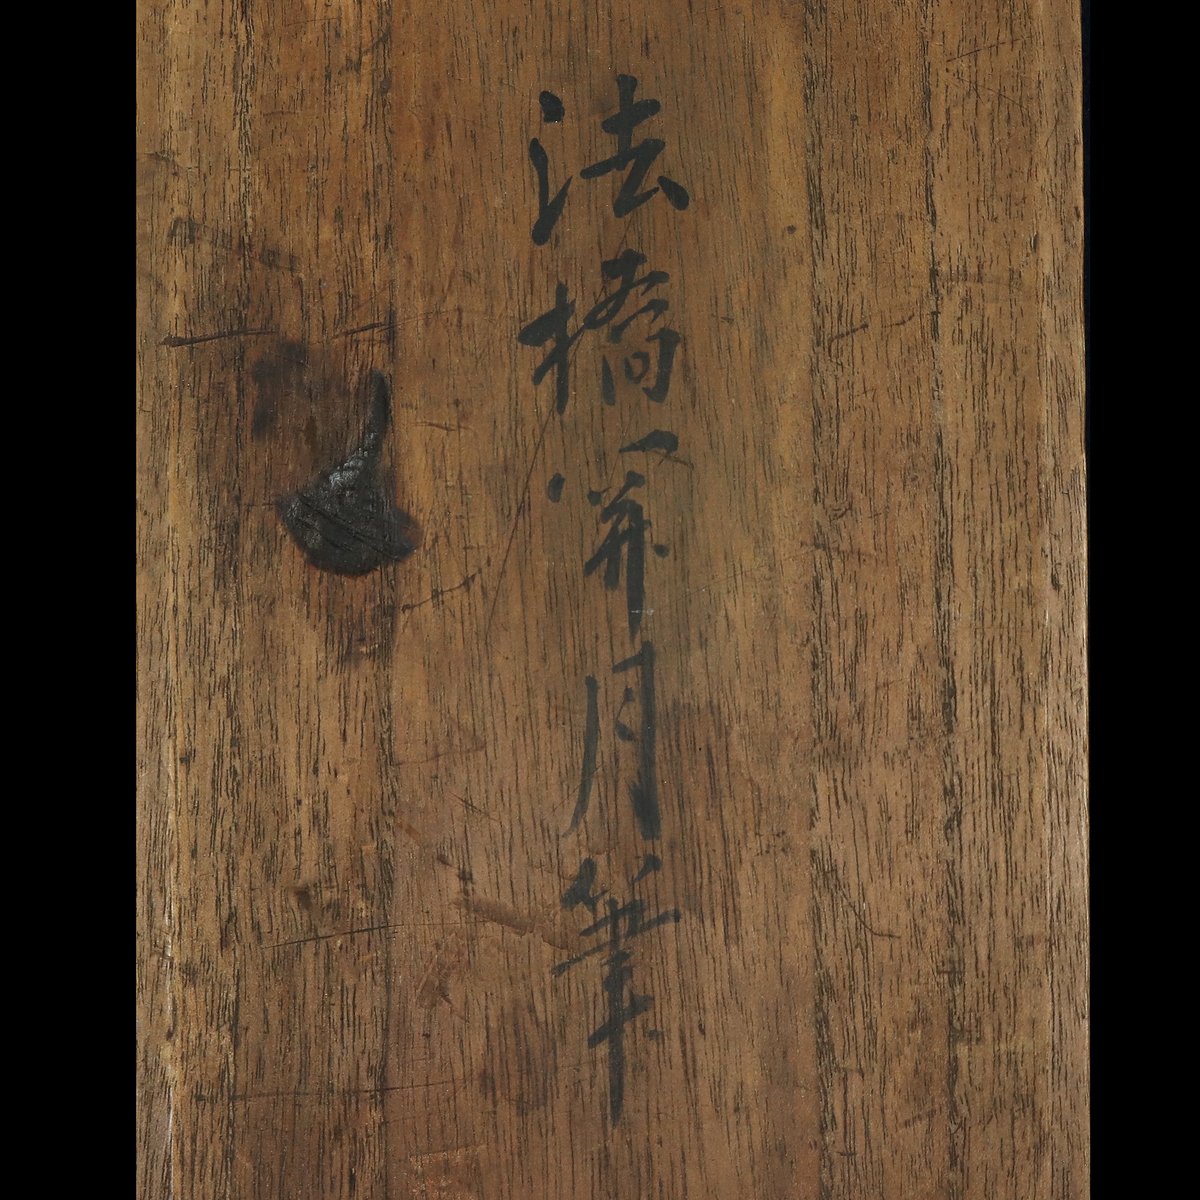 法橋関月筆